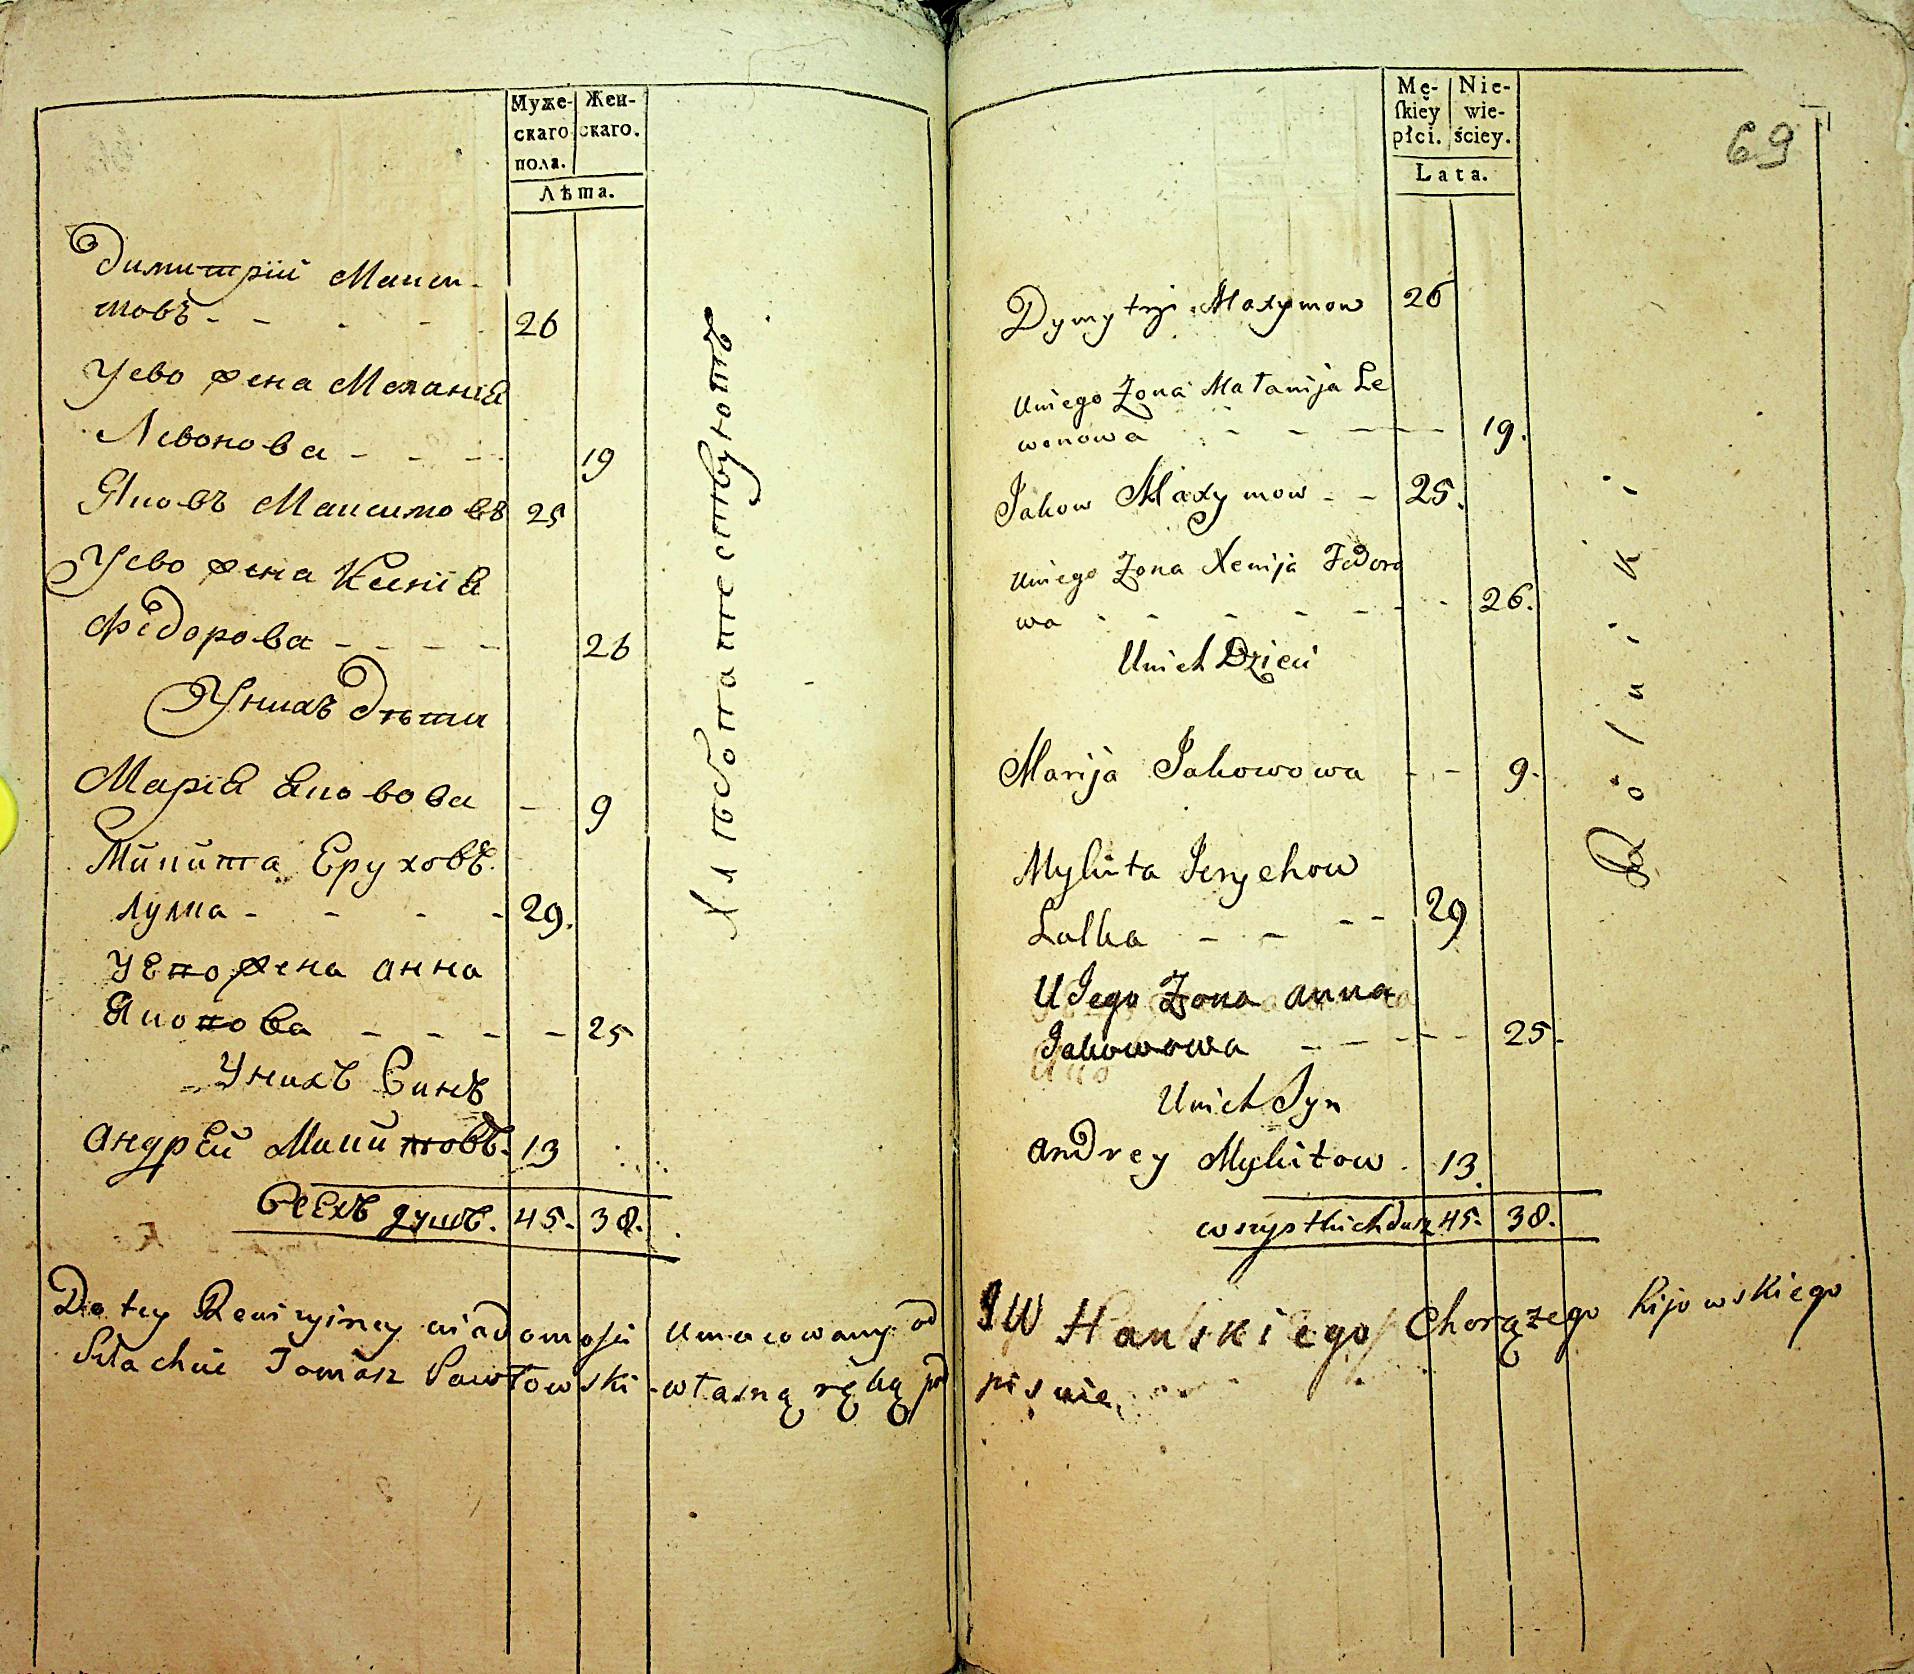 Муже-
скаго
пола.
Жен-
скаго.
Лѣта.
Димитрій Макси-
мовъ - - - - - 26
Уево жена Меланія
Левонова - - - - 19
Яковъ Максимовъ 25
Уево жена Ксенія
Федорова - - - - 26
Унихъ Дѣти
Марія Яковова - 9
Микита Еруховъ.
Лулка - - - - 29.
У Ево жена Анна
Яковова - - - - 25
Унихъ Синъ
Андрей Микитовъ. 13
Всехъ душъ. 45. 38.
Хлѣбопашествуютъ
Mę-
skiey
płci.
Nie-
wie-
ściey.
Lata.
69
Dymytryi Maxymow 26
Uniego Zona Małanija Le
wonowa - - - - 19.
Jakow Maxymow - - 25.
Uniego Zona Xenija Fedoro
wa - - - - - - 26.
Unich Dzieci
Marija Jakowowa - - 9.
Mykita Jerychow
Lulka - - - - 29
U Jego Zona Anna
Jakowowa - - - - - 25.
Unich Syn
Andrey Mykitow . 13.
wszystkich dusz 45. 38.
Rolniki
Do tey Rewizyiney wiadomości Umocowany od JW Hańskiego Chorążego Kijowskiego
Szlachcic Tomasz Pawłowski - własną ręką pod pisuię